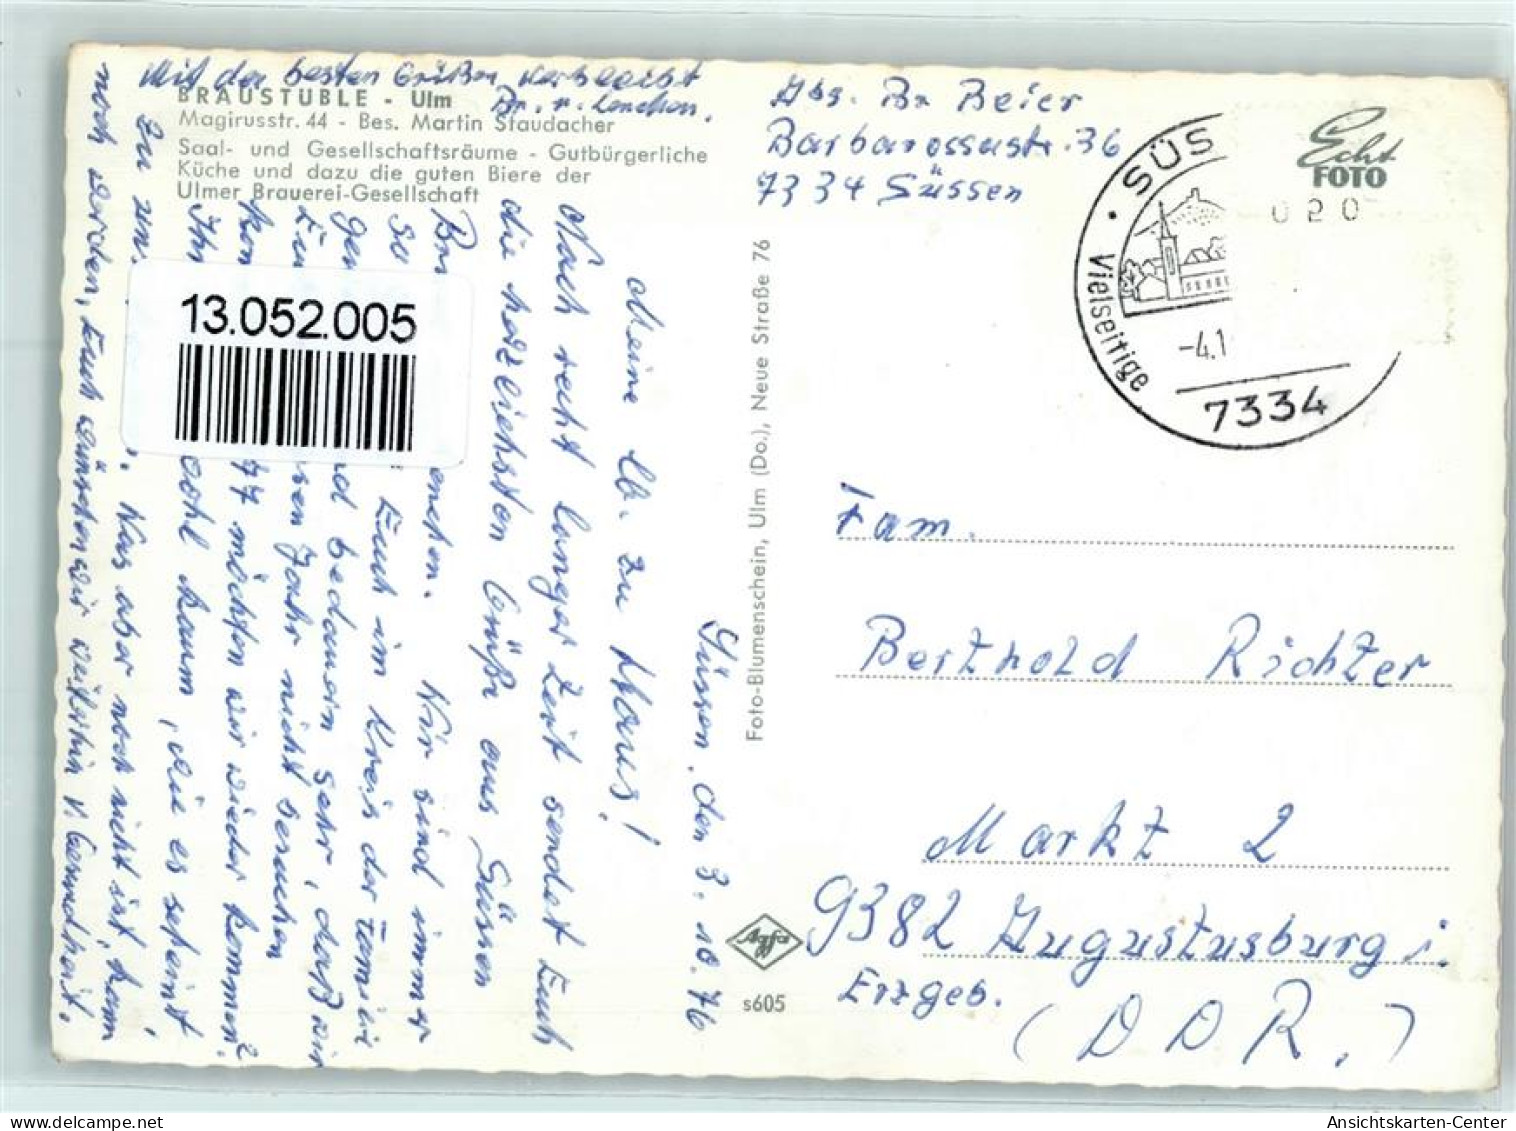 Mit den besten Grüßen verbleibt
Br. u. Lenchen.
BRÄUSTÜBLE - Ulm
Magirusstr. 44 - Bes. Martin Staudacher
Saal- und Gesellschaftsräume - Gutbürgerliche
Küche und dazu die guten Biere der
Ulmer Brauerei-Gesellschaft
13.052.005
Süssen, den 3.10.76
Meine lb. zu Haus!
Nach recht langer Zeit sendet Euch
die herzlichsten Grüße aus Süssen
Wir sind immer
so Euch im Kreis der Familie
bedauern sehr, daß wir
Jahr nicht besuchen
77 möchten wir wieder kommen
Ihr wohl kaum, wie es scheint
zu uns. Was aber noch nicht ist, kann
noch werden, Euch wünschen wir weiterhin v. Gesundheit.
Foto-Blumenschein, Ulm (Do.), Neue Straße 76
Agfa
s605
Abs. Br Beier
Barbarossastr. 36
7334 Süssen
SÜS
Vielseitige
-4.1
7334
Echt
FOTO
020
Fam.
Berthold Richter
Markt 2
9382 Augustusburg i.
Erzgeb.
(DDR.)
Ansichtskarten-Center